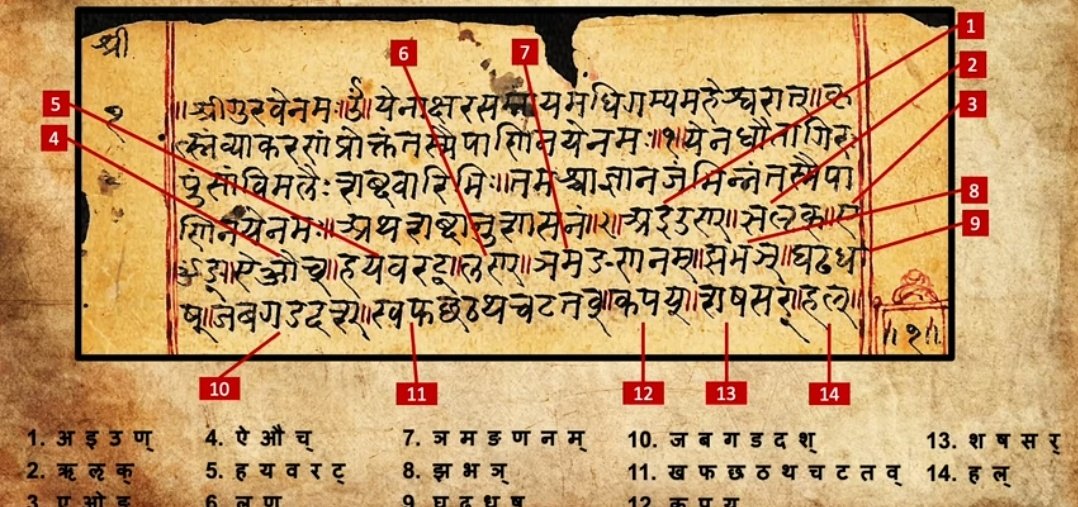 श्री
१
॥श्रीगुरवेनमः॥ॐ॥येनाक्षरसमाम्नायमधिगम्यमहेश्वरात्॥कृ
त्स्नंव्याकरणंप्रोक्तंतस्मैपाणिनयेनमः॥१॥येनधौतागिरः
पुंसांविमलैःशब्दवारिभिः॥तमश्चाज्ञानजंभिन्नंतस्मैपा
णिनयेनमः॥अथशब्दानुशासनं॥२॥अइउण्॥ऋलृक्॥ए
ओङ्॥ऐऔच्॥हयवरट्॥लण्॥ञमङणनम्॥झभञ्॥घढध
ष्॥जबगडदश्॥खफछठथचटतव्॥कपय्॥शषसर्॥हल्॥
॥१॥
1
2
3
4
5
6
7
8
9
10
11
12
13
14
1. अ इ उ ण् 4. ऐ औ च् 7. ञ म ङ ण न म् 10. ज ब ग ड द श् 13. श ष स र्
2. ऋ ऌ क् 5. ह य व र ट् 8. झ भ ञ् 11. ख फ छ ठ थ च ट त व् 14. ह ल्
3. ए ओ ङ 6. ल ण 9. घ ढ ध ष 12. क प य